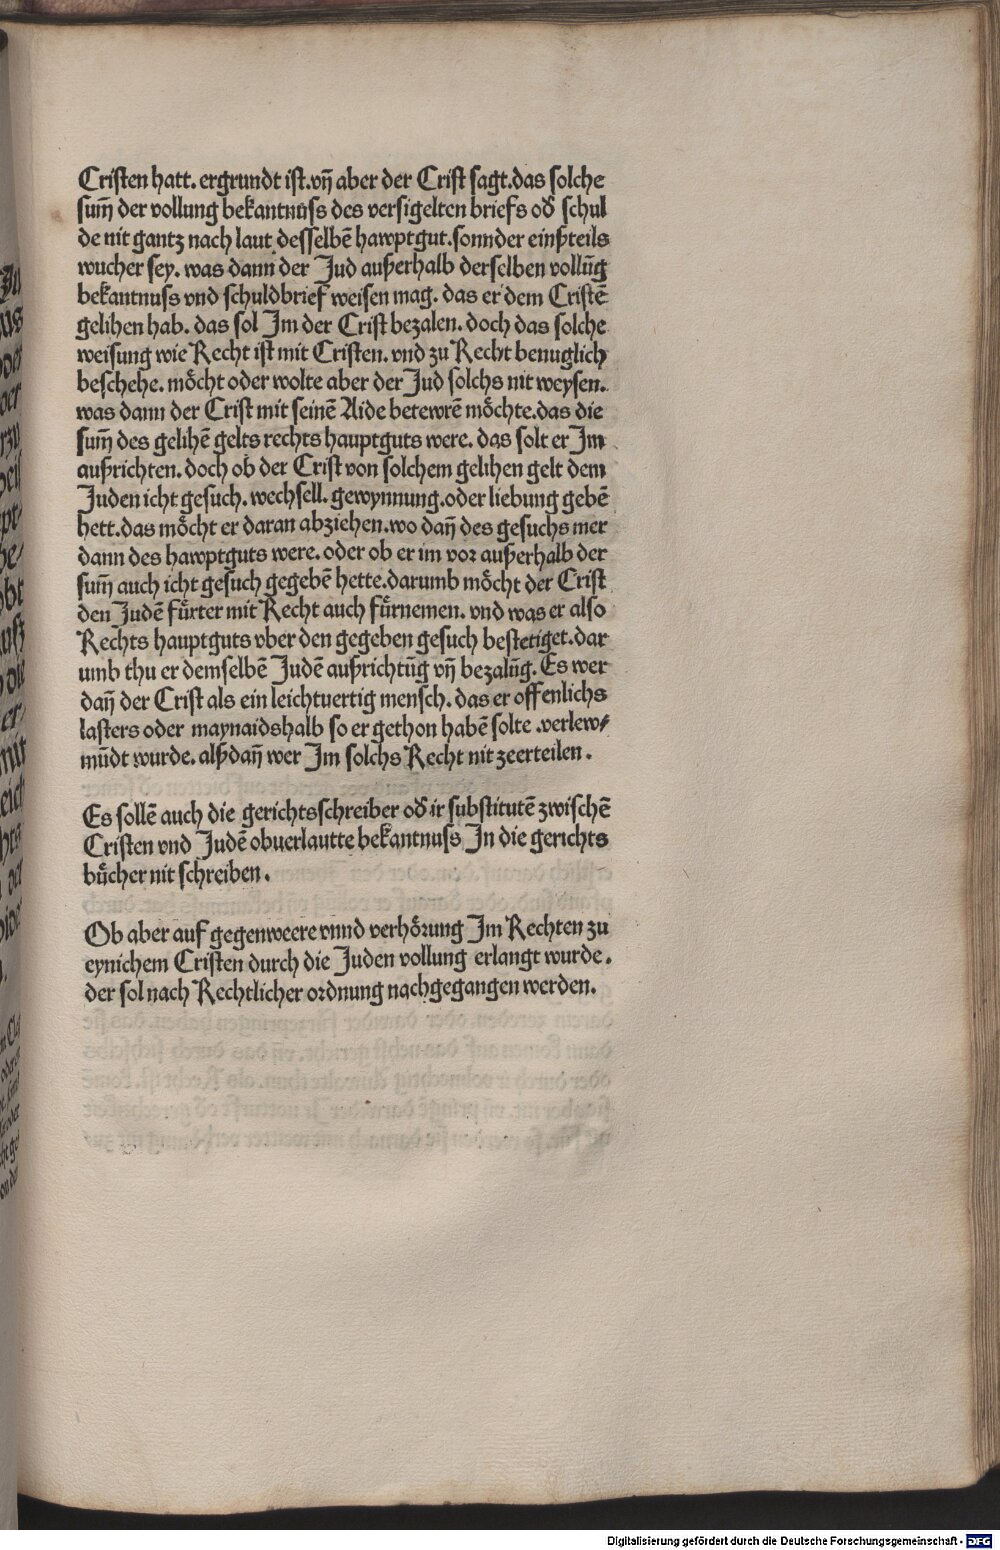 Cristen hatt. ergrundt ist. vñ aber der Crist sagt. das solche
sum̃ der vollung bekantnüss des versigelten briefs oď schul
de nit gantz nach laut desselbẽ hawptgut. sonnder einßteils
wucher sey. was dann der Jud außerhalb derselben vollũg
bekantnuss vnd schuldbrief weisen mag. das er dem Cristẽ
gelihen hab. das sol Im der Crist bezalen. doch das solche
weisung wie Recht ist mit Cristen. vnd zu Recht benuglich
beschehe. möcht oder wolte aber der Jud solchs nit weysen.
was dann der Crist mit seinẽ Aide betewrẽ möchte. das die
sum̃ des gelihẽ gelts rechts hauptguts were. das solt er Im
außrichten. doch ob der Crist von solchem gelihen gelt dem
Juden icht gesuch. wechsell. gewynnung. oder liebung gebẽ
hett. das möcht er daran abziehen. wo dañ des gesuchs mer
dann des hawptguts were. oder ob er im vor außerhalb der
sum̃ auch icht gesuch gegebẽ hette. darumb möcht der Crist
den Judẽ fürter mit Recht auch fürnemen. vnd was er also
Rechts hauptguts vber den gegeben gesuch bestetiget. dar
umb thu er demselbẽ Judẽ außrichtũg vñ bezalũg. Es wer
dañ der Crist als ein leichtuertig mensch. das er offenlichs
lasters oder maynaidshalb so er gethon habẽ solte. verlew/
mũdt wurde. alßdañ wer Im solchs Recht nit zeerteilen.
Es sollẽ auch die gerichtsschreiber oď ir substitutẽ zwischẽ
Cristen vnd Judẽ obuerlautte bekantnuss In die gerichts
bücher nit schreiben.
Ob aber auf gegenweere vnnd verhörung Im Rechten zu
eynichem Cristen durch die Juden vollung erlangt wurde.
der sol nach Rechtlicher ordnung nachgegangen werden.
Digitalisierung gefördert durch die Deutsche Forschungsgemeinschaft - DFG